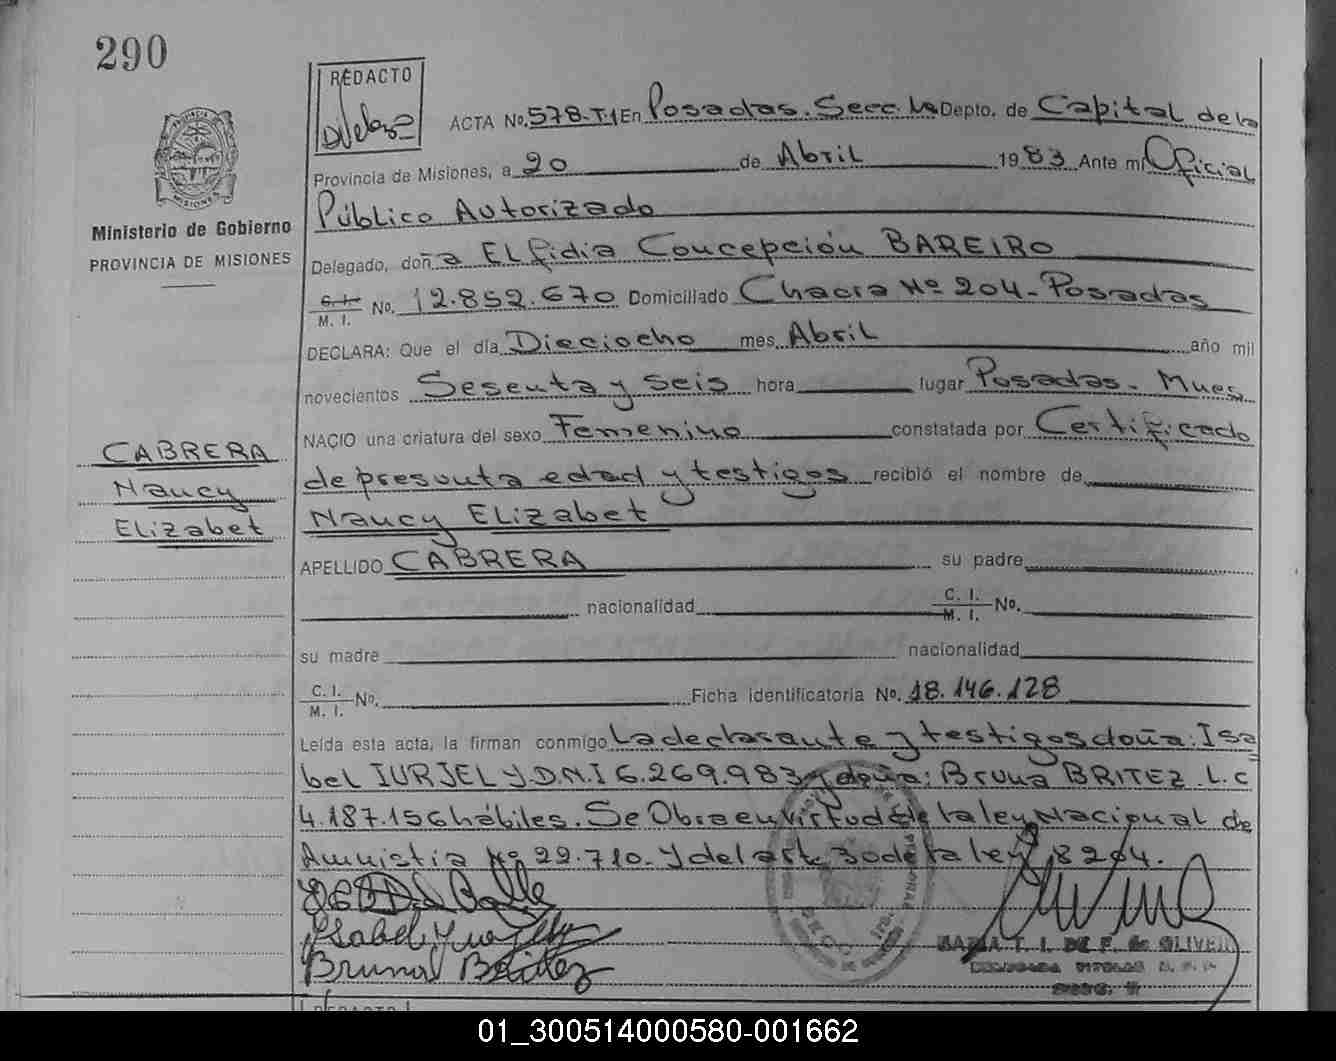 290
REDACTO
ACTA No. 578-T-1 En Posadas. Secc. 1a Depto. de Capital de la
Provincia de Misiones, a 20 de Abril 1983 Ante mi Oficial
Público Autorizado
Ministerio de Gobierno
PROVINCIA DE MISIONES
Delegado, doña ELfidia Concepción BAREIRO
C. I.
M. I. No. 12.852.670 Domiciliado Chacra Nº 204-Posadas
DECLARA: Que el día Dieciocho mes Abril año mil
novecientos Sesenta y seis hora lugar Posadas. Mnes
NACIO una criatura del sexo Femenino constatada por Certificado
CABRERA
Nancy
Elizabet
de presunta edad y testigos recibió el nombre de
Nancy Elizabet
APELLIDO CABRERA su padre
nacionalidad C. I. M. I. No.
su madre nacionalidad
C. I.
M. I. No. Ficha identificatoria No. 18.146.128
Leída esta acta, la firman conmigo La declarante y testigos doña: Isa
bel IURJEL Y D.N.I 6.269.983 y doña: Bruna BRITEZ L.C
4.187.156 hábiles. Se Obra en Virtud de la ley Nacional de
Amnistia Nº 22.710. Y del art. 30 de la ley 18204.
Isabel
Bruna Britez
MARIA T. I. DE F. de OLIVER
DELEGADA TITULAR R. P. P.
SECC. 1ª
REDACTO
01_300514000580-001662